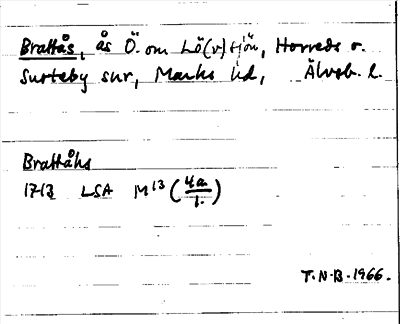 Brattås, ås Ö. om Lö(v)tjön, Horreds o.
Surteby snr, Marks hd, Älvsb. l.
Brattåhs
1713 LSA M13 (4a/1.)
T.N.B. 1966.